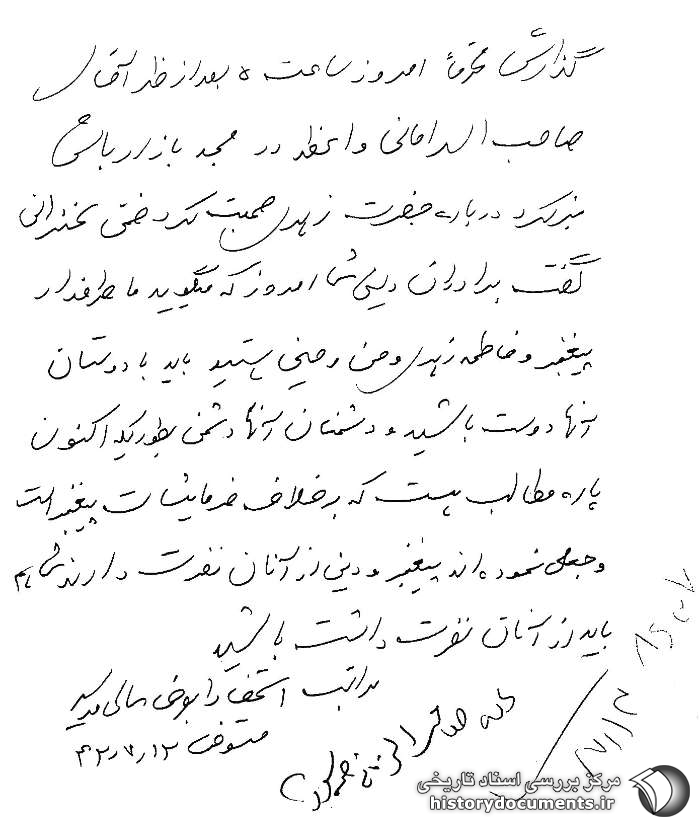 گذارش محترماً امروز ساعت ۵ بعد از ظهر آقای
صاحب الزمانی واعظ در مسجد بازار بالای
منبر کرد درباره حضرت زهرا صحبت کرد ضمن سخنرانی
گفت برادران دینی شما امروز که میگویید ما طرفدار
پیغمبر و فاطمه زهرا و حسن و حسین هستید باید با دوستان
آنها دوست باشید و دشمنان آنها دشمن بطوریکه اکنون
پاره مطالب هست که برخلاف فرمایشات پیغمبر است
و جعل نموده‌اند پیغمبر و دین از آنان نفرت دارند شما هم
باید از آنان نفرت داشته باشید
مراتب استحضاراً بعرض عالی میرسد
۴۲٫۷٫۱۲
مرکز بررسی اسناد تاریخی
historydocuments.ir